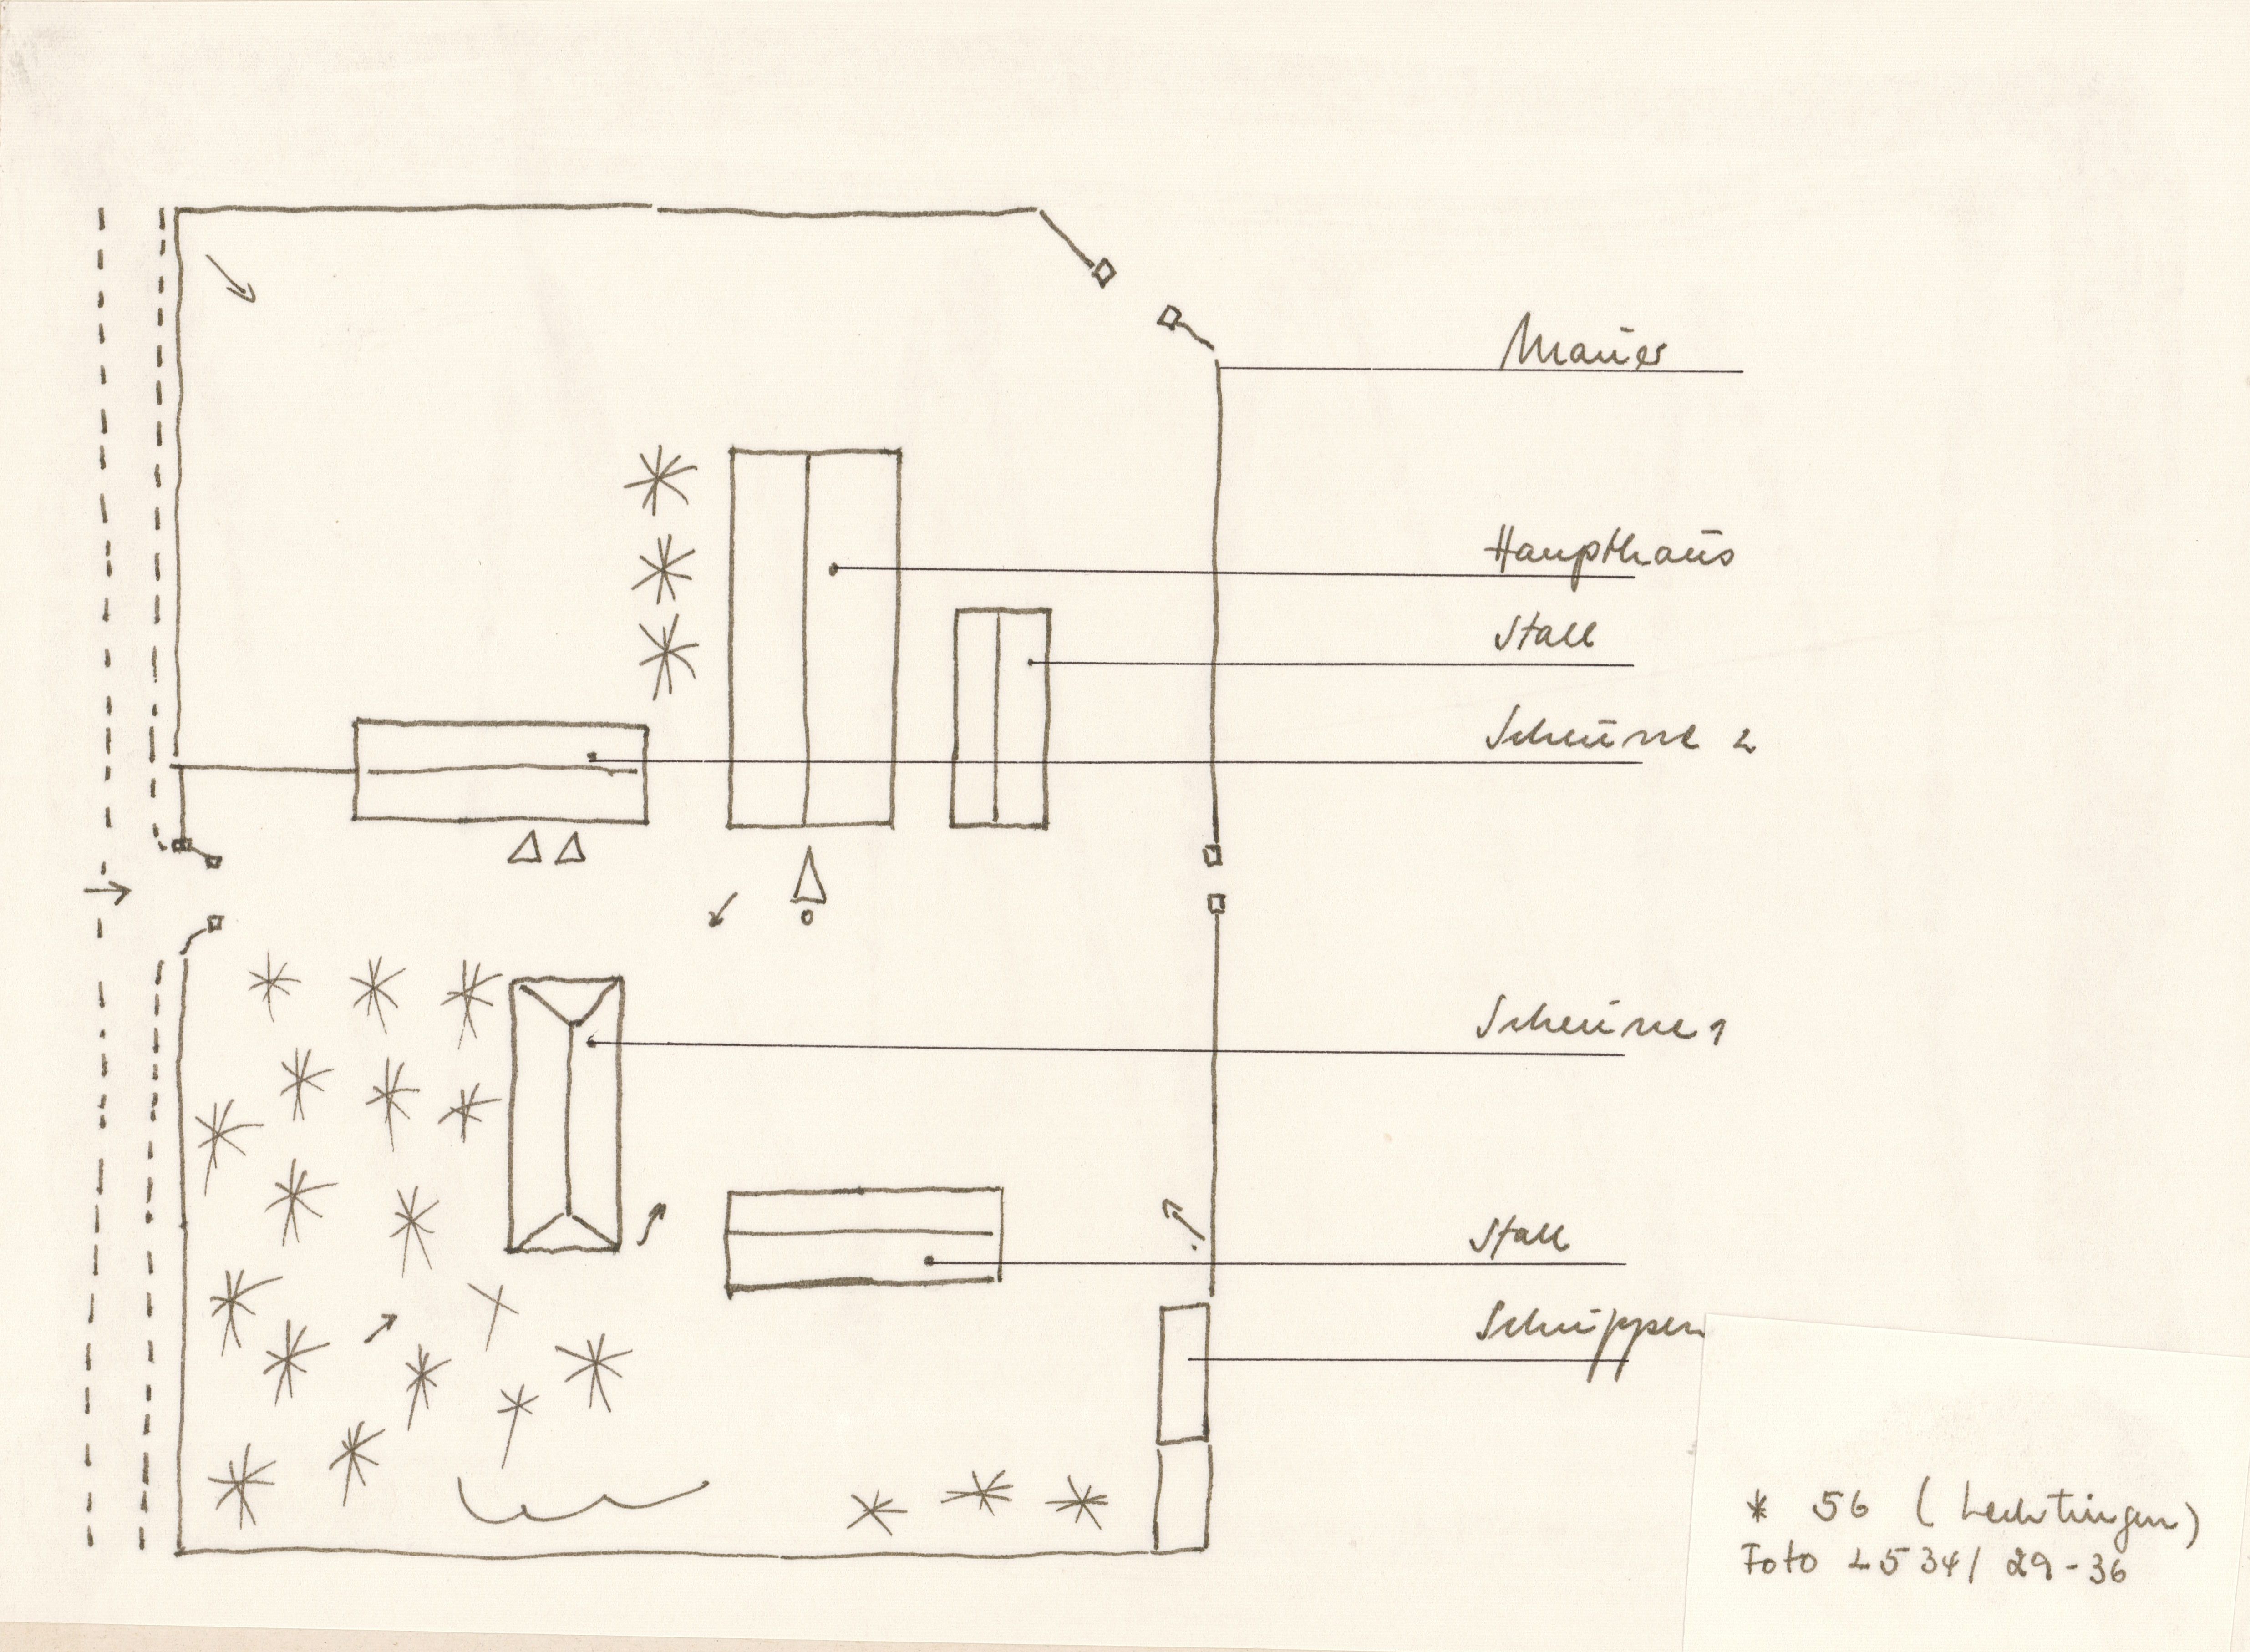 Mauer
Haupthaus
Stall
Scheune 2
Scheune 1
Stall
Schuppen
* 56 (Lechtingen)
Foto L534/29-36